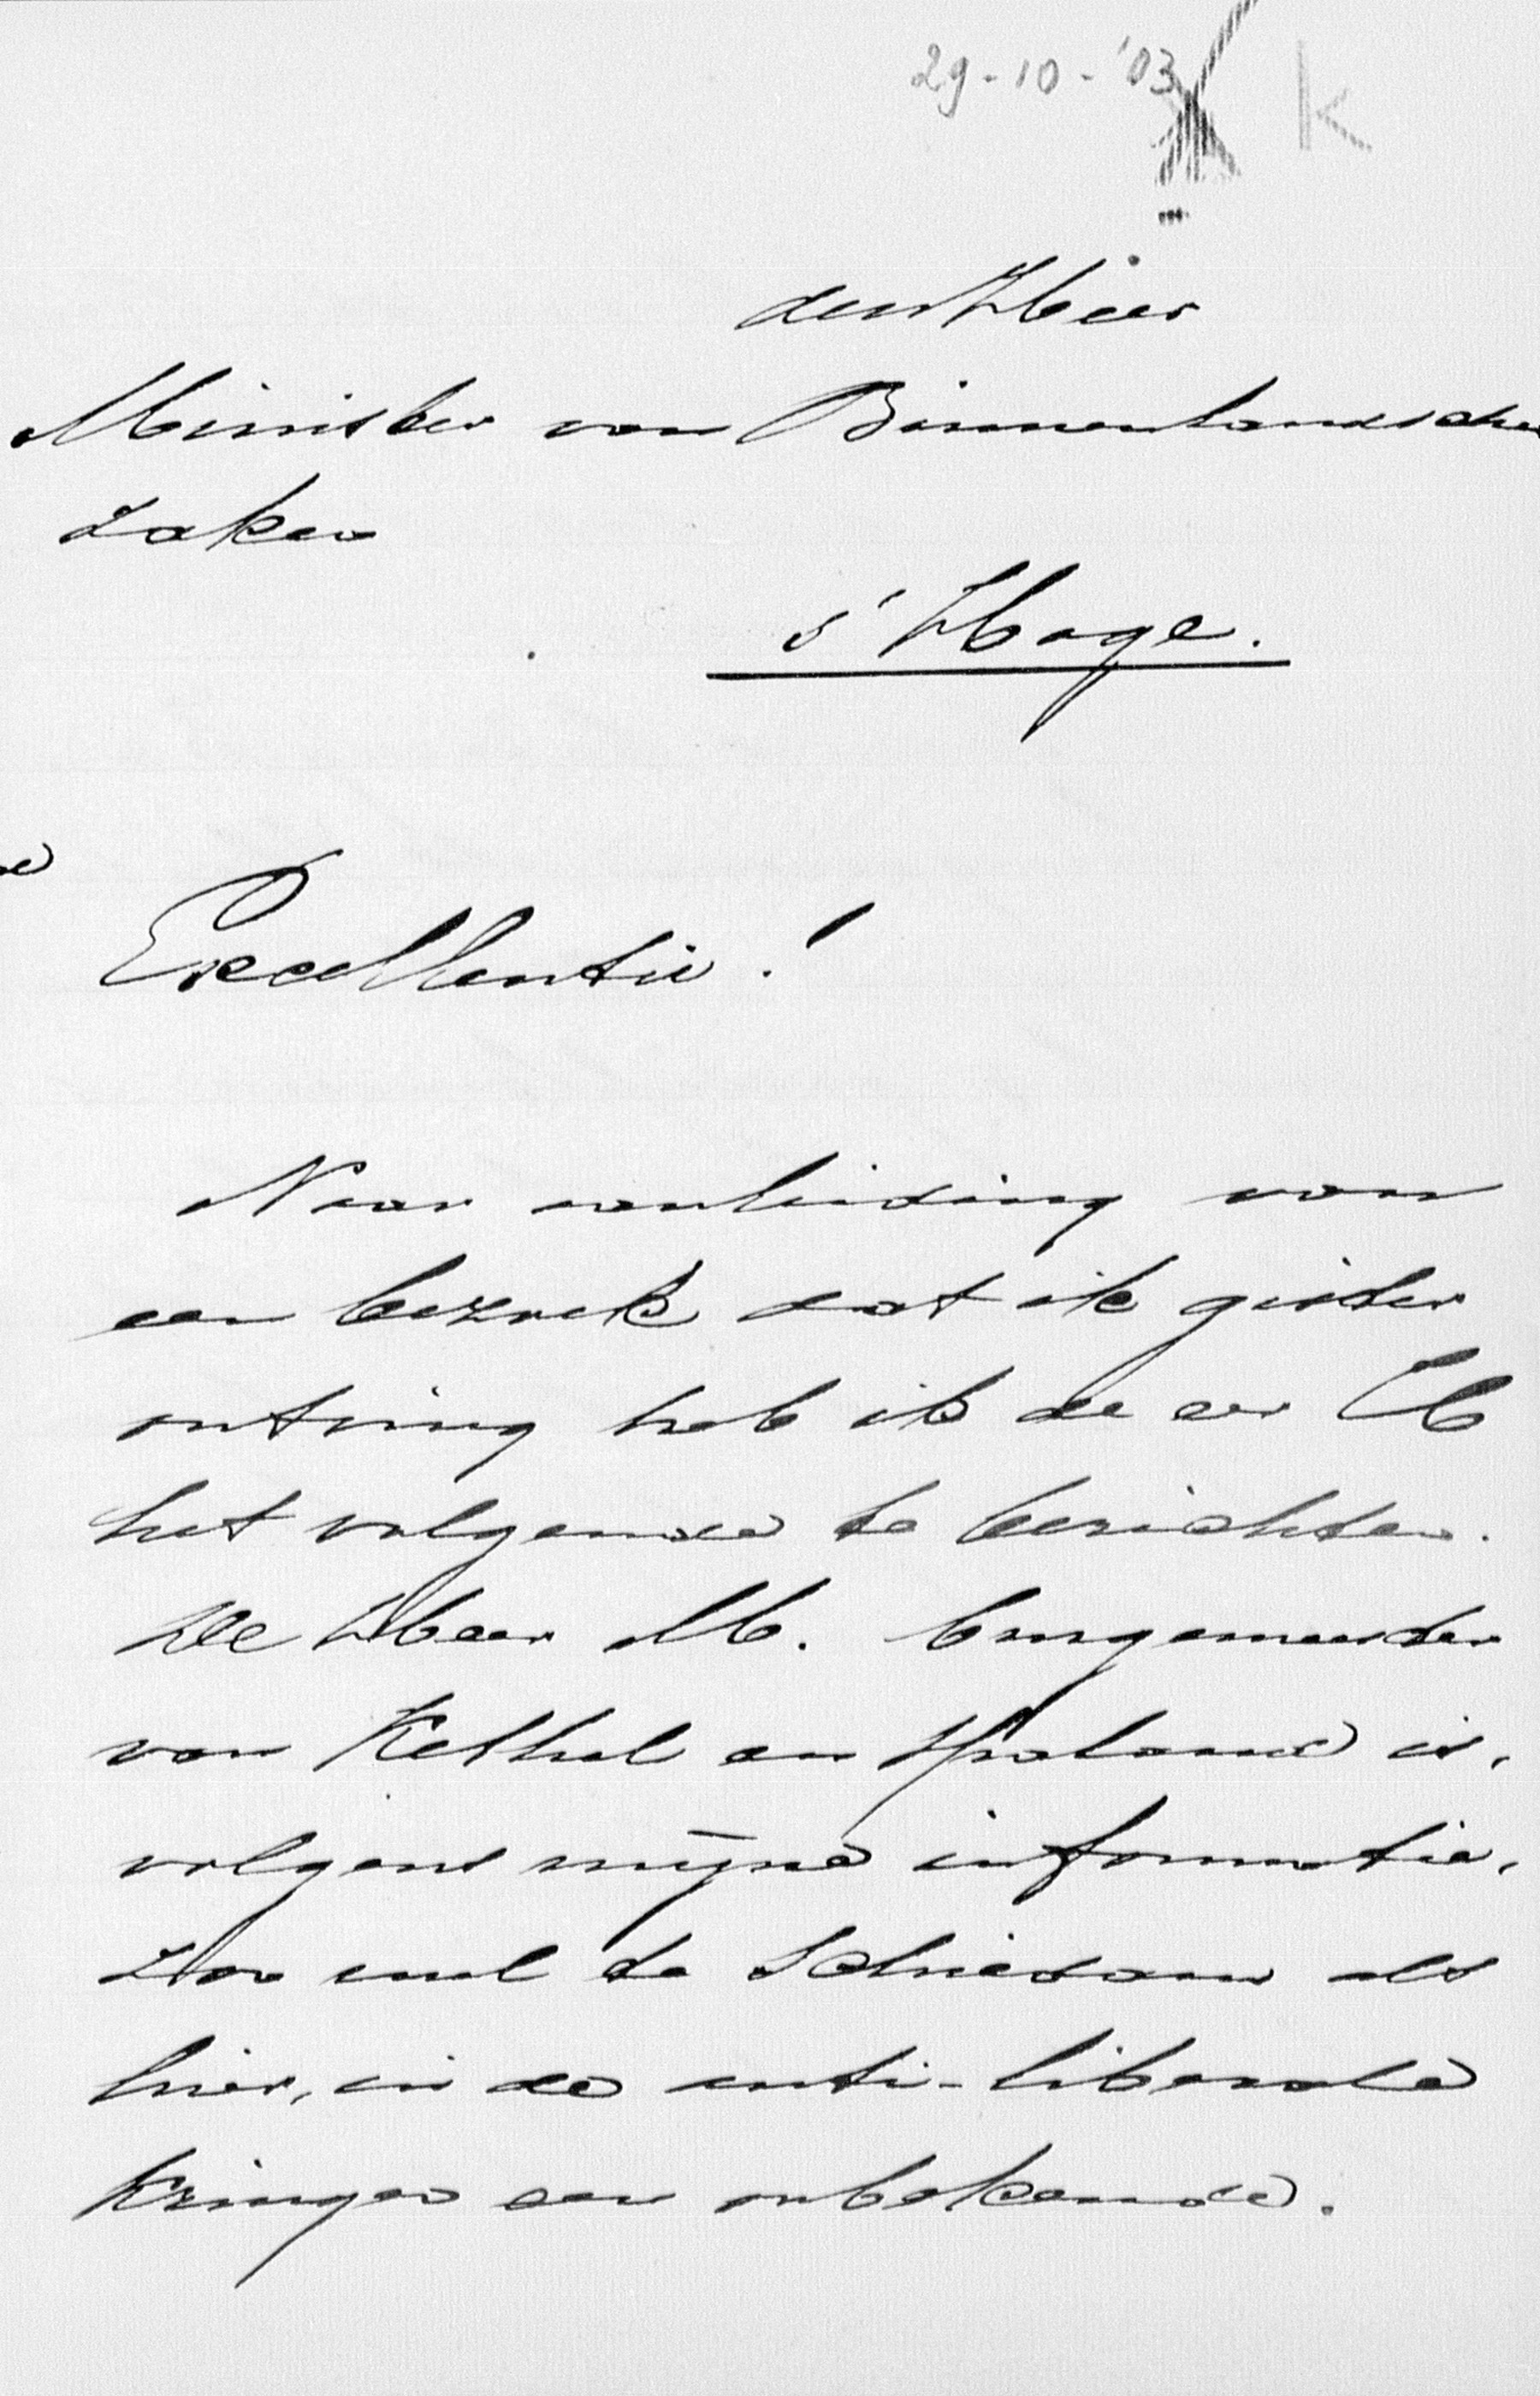 29-10-'03 K
den Heer
Minister van Binnenlandsche
Zaken
s' Hage.
Excellentie!
Naar aanleiding van
een bezoek dat ik gister
ontving heb ik de eer UE
het volgende te berichten.
De Heer M. burgemeester
van Kethel en Spaland is,
volgens mijne informatie,
zoo wel te Schiedam als
hier, in de anti-liberale
kringen een onbekende.